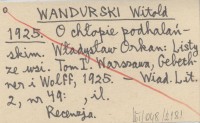 WANDURSKI Witold
1925. O chłopie podhalań-
skim. Władysław Orkan: Listy
ze wsi. Tom I. Warszawa, Gebeth-
ner i Wolff, 1925. — Wiad. Lit.
2, nr 49: , il.
Recenzja.